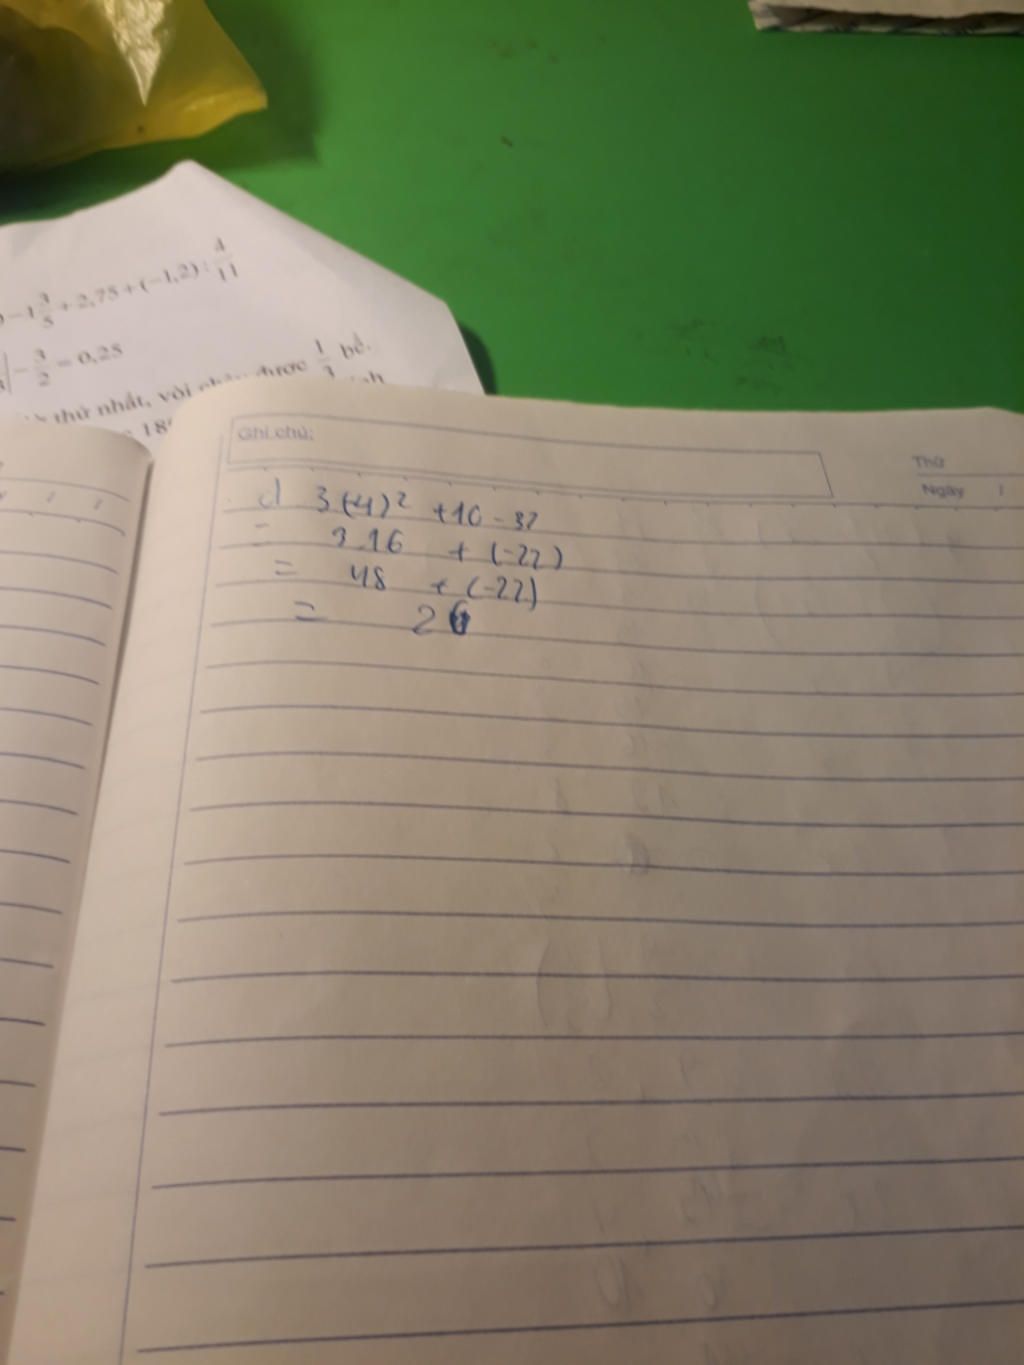 - 1 3/5 + 2,75 + (-1,2) : 4/11
| - 3/2 = 0,25
thứ nhất, vòi chảy được 1/3 bể.
18
Ghi chú:
Thứ
Ngày
d 3(-4)² + 10 - 32
= 3.16 + (-22)
= 48 + (-22)
= 26